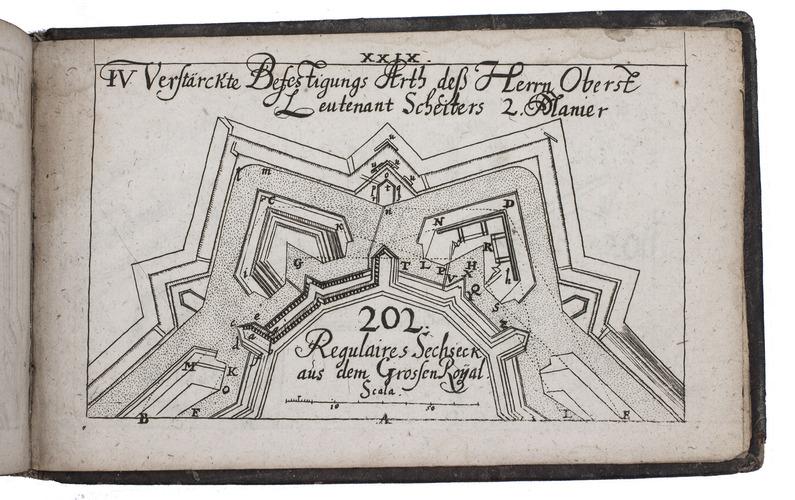 XXIX.
IV Verstärckte Befestigungs Arth deß Herrn Oberst
Leutenant Scheiters 2. Manier
u
u u
u u
o
p t q
l m
n
C
k
N
D
R
G
T L P V
H
X
Q
h
i
S
c e
a
d
f
z
202.
Regulaires Sechseck
aus dem Grossen Royal.
Scala.
10 50
M
K
O
B E A L F